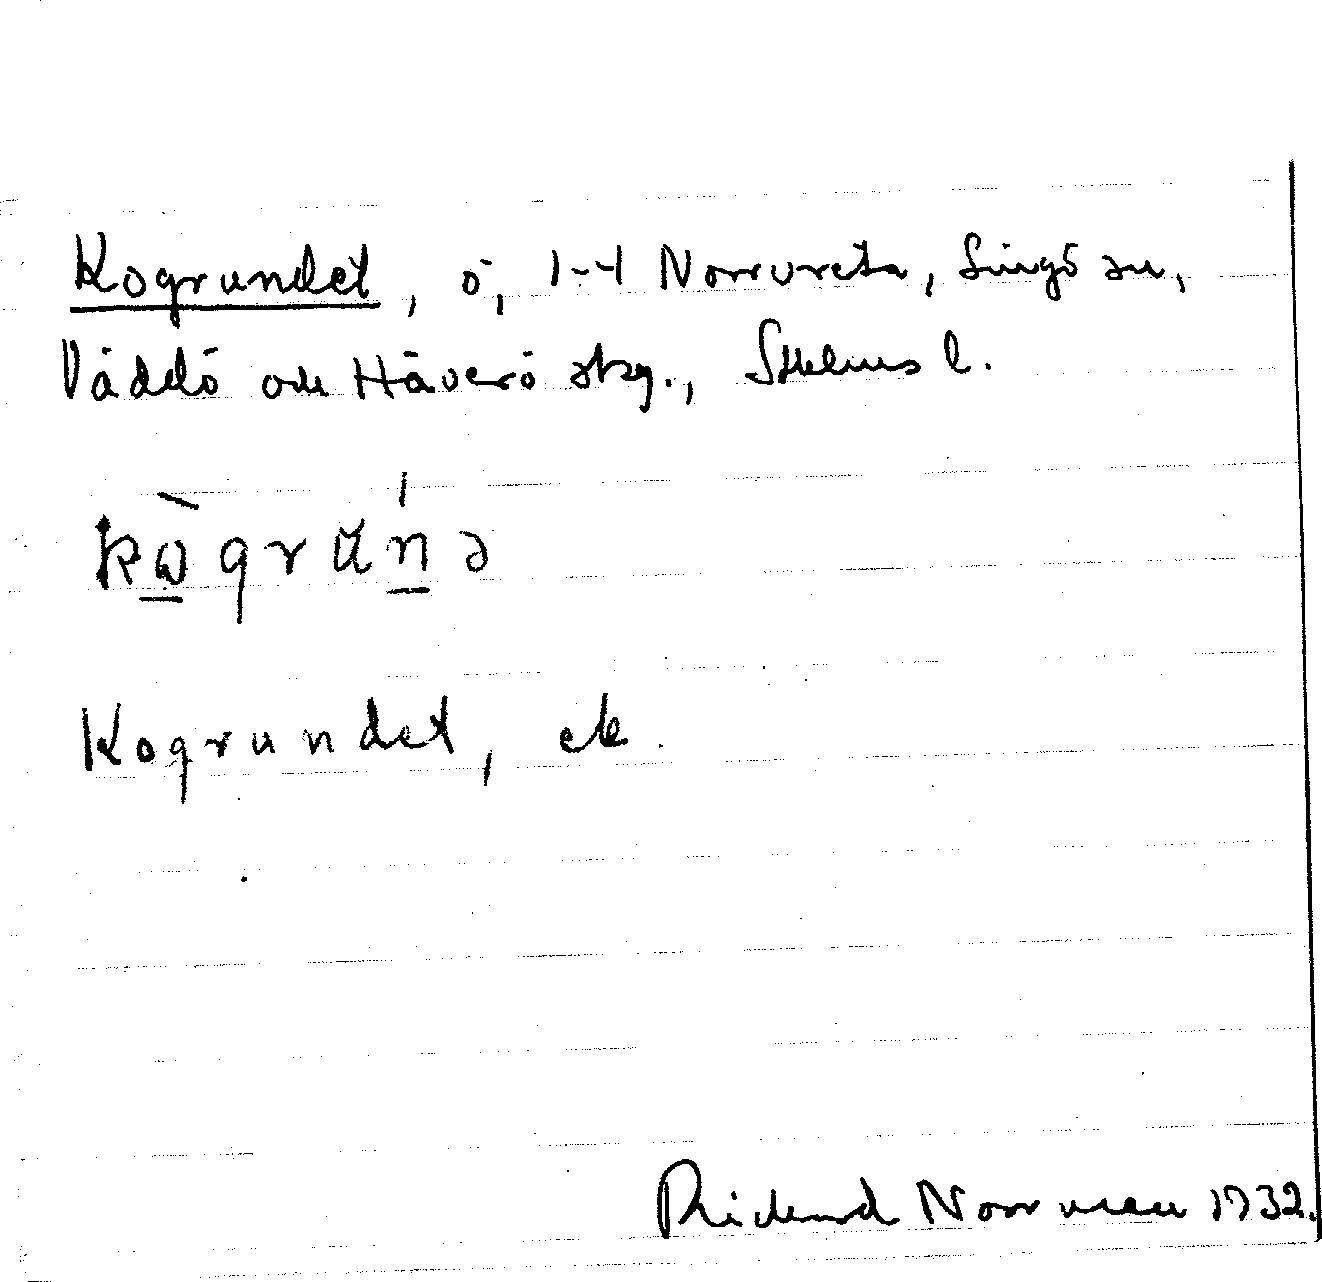 Kogrundet, ö, 1-4 Norrvreta, Singö sn,
Väddö och Häverö skg., Sthlms l.
kὼ̲grŭń̲ə
Kogrundet, ek.
Rickard Norrman 1932.